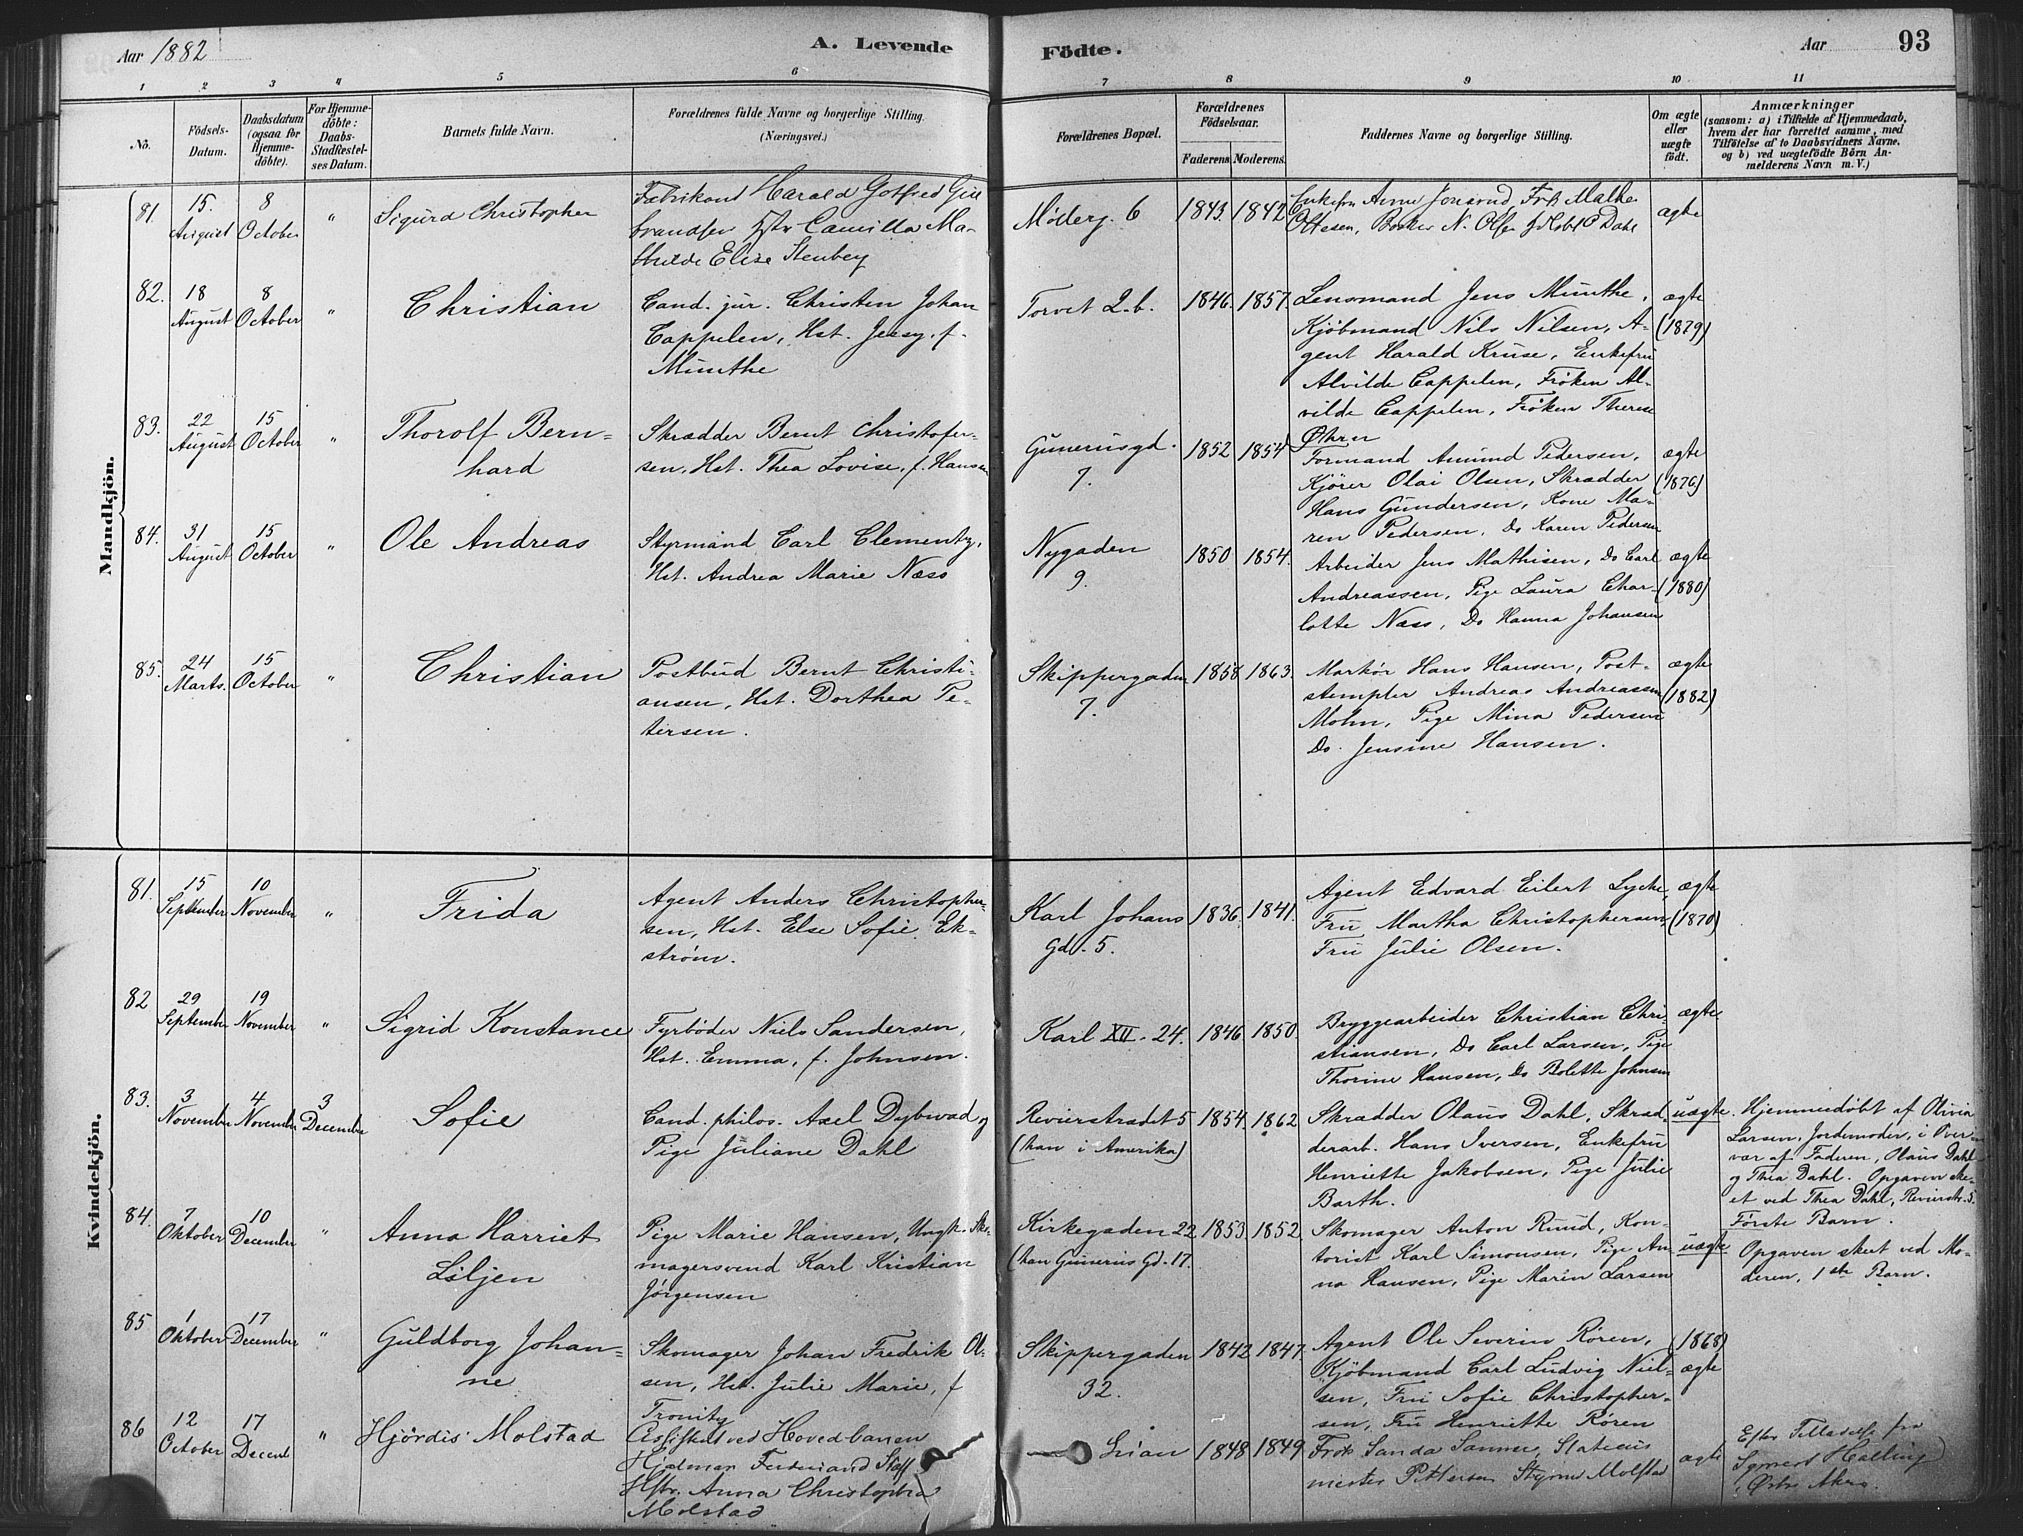 Aar 1882
A. Levende
Födte.
Aar
93
1 2 3 4 5 6 7 8 9 10 11
No.
Födsels-
Datum.
Daabsdatum
(ogsaa for
Hjemme-
döbte).
For Hjemme-
döbte:
Daabs-
Stadfæstel-
ses Datum.
Barnets fulde Navn.
Forældrenes fulde Navne og borgerlige Stilling.
(Næringsvei.)
Forældrenes Bopæl.
Forældrenes
Födselsaar.
Faderens. Moderens.
Faddernes Navne og borgerlige Stilling.
Om ægte
eller
uægte
födt.
Anmærkninger
(saasom: a) i Tilfælde af Hjemmedaab,
hvem der har forrettet samme, med
Tilföielse af to Daabsvidners Navne.
og b) ved uægtefödte Börn An-
melderens Navn m. V.)
Mandkjön.
81.
15.
August
8
October
"
Sigurd Christopher
Fabrikant Harald Gotfred Gul
brandsen Hstr Camilla Ma-
thilde Elise Stenberg
Mølerg. 6
1843. 1842
Enkefru Anne
Ottesen, N. Olsen Dahl
ægte
82.
18
August
8
October
"
Christian
Cand. jur. Christen Johan
Cappelen, Hst. Jessy, f.
Munthe
Torvet 2.b.
1846. 1857.
Lensmand Jens Munthe,
Kjöbmand Nils Nilsen, A-
gent Harald Kruse, Enkefru
Alvilde Cappelen, Frøken Al-
vilde Cappelen, Frøken Therese
Øhrn
ægte
(1879)
83.
22
August
15
October
"
Thorolf Bern-
hard
Skrædder Bernt Christofer-
sen, Hst. Thea Lovise, f. Hansen
Gunerusgd.
7.
1852 1854
Formand Amund Pedersen,
Kjører Olai Olsen, Skrædder
Hans Gundersen, Kone Ma-
ren Pedersen, Do Karen Pedersen
ægte
(1876)
84.
31
August
15
October
"
Ole Andreas
Styrmand Carl Clementz,
Hst. Andrea Marie Næss
Nygaden
9.
1850 1854.
Arbeider Jens Mathisen, Do Carl
Andreassen, Pige Laura Char-
lotte Næss, Do Hanna Johansen
ægte
(1880)
85.
24
Marts.
15
October
"
Christian
Postbud Bernt Christi-
ansen, Hst. Dorthea Pe-
tersen.
Skippergaden
7.
1858 1863.
Markør Hans Hansen, Post-
stempler Andreas Andreassen
Mohn, Pige Mina Pedersen
Do. Jensine Hansen.
ægte
(1882)
Kvindekjön.
81.
15
September
10
November
"
Frida
Agent Anders Christopher-
sen, Hst. Else Sofie Ek-
strøm.
Karl Johans
Gd. 5.
1836. 1841.
Agent Edvard Eilert Lycke,
Fru Martha Christophersen,
Fru Julie Olsen.
ægte
(1870)
82
29
September
19
November
"
Sigrid Konstance
Fyrbøder Niels Sandersen,
Hst. Emma, f. Johnsen.
Karl XII. 24.
1846 1850.
Bryggearbeider Christian Chri-
stiansen, Do Carl Larsen, Pige
Thorine Hansen, Do Bolette Johnsen
ægte
83.
3
November
4
November
3
December
Sofie
Cand. philos. Axel Dybwad og
Pige Juliane Dahl
Revierstrædet 5
(han i Amerika)
1854. 1862
Skrædder Olaus Dahl, Skræd-
derarb. Hans Iversen, Enkefru
Henriette Jakobsen, Pige Julie
Barth.
uægte
Hjemmedøbt af Olivia
Larsen, Jordemoder, i Over-
vær af Faderen, Olaus Dahl
og Thea Dahl. Opgaven ske-
et ved Thea Dahl, Revierstr. 5.
Første Barn.
84.
7
Oktober
10
December
"
Anna Harriet
Liljen
Pige Marie Hansen, Ungk. Sko-
magersvend Karl Kristian
Jörgensen
Kirkegaden 22
(han Gunerius Gd. 17.
1853. 1852.
Skomager Anton Ruud, Kon-
torist Karl Simonsen, Pige An-
na Hansen, Pige Maren Larsen
uægte
Opgaven skeet ved Mo-
deren, 1ste Barn.
85
1
Oktober
17
December
"
Guldborg Johan-
ne
Skomager Johan Fredrik Ol-
sen, Hst. Julie Marie, f
Tronity
Skippergaden
32.
1842 1847.
Agent Ole Severin Røren,
Kjöbmand Carl Ludvig Niel-
sen, Fru Sofie Christopher-
sen, Fru Henriette Røren
(1868)
ægte
86
12
October
17
Decemb
"
Hjördis Molstad
Assistent ved Hovedbanen
Hjalmar Ferdinand
Hstr. Anna Christophra
Molstad
Grian
1848 1849
Frøk Sanda Sanner, Stations
mester Pettersen Styrm Molstad
ægte
Efter Tilladelse fra
Halling
Aker.